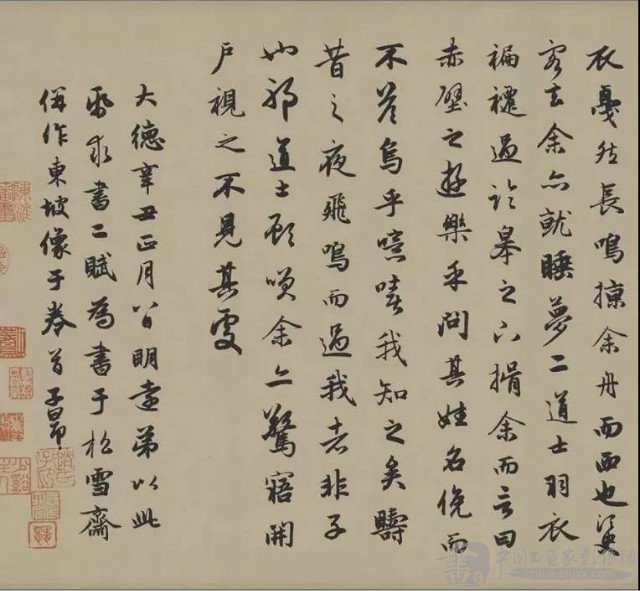 衣戛然長鳴掠余舟而西也須臾
客去余亦就睡夢二道士羽衣
褊褼過臨皋之下揖余而言曰
赤壁之遊樂乎問其姓名俛而
不答烏乎噫嘻我知之矣疇
昔之夜飛鳴而過我者非子
也耶道士顧笑余亦驚寤開
戶視之不見其處
大德辛丑正月八日明遠弟以此
紙求書二賦為書于松雪齋
併作東坡像于卷首子昂